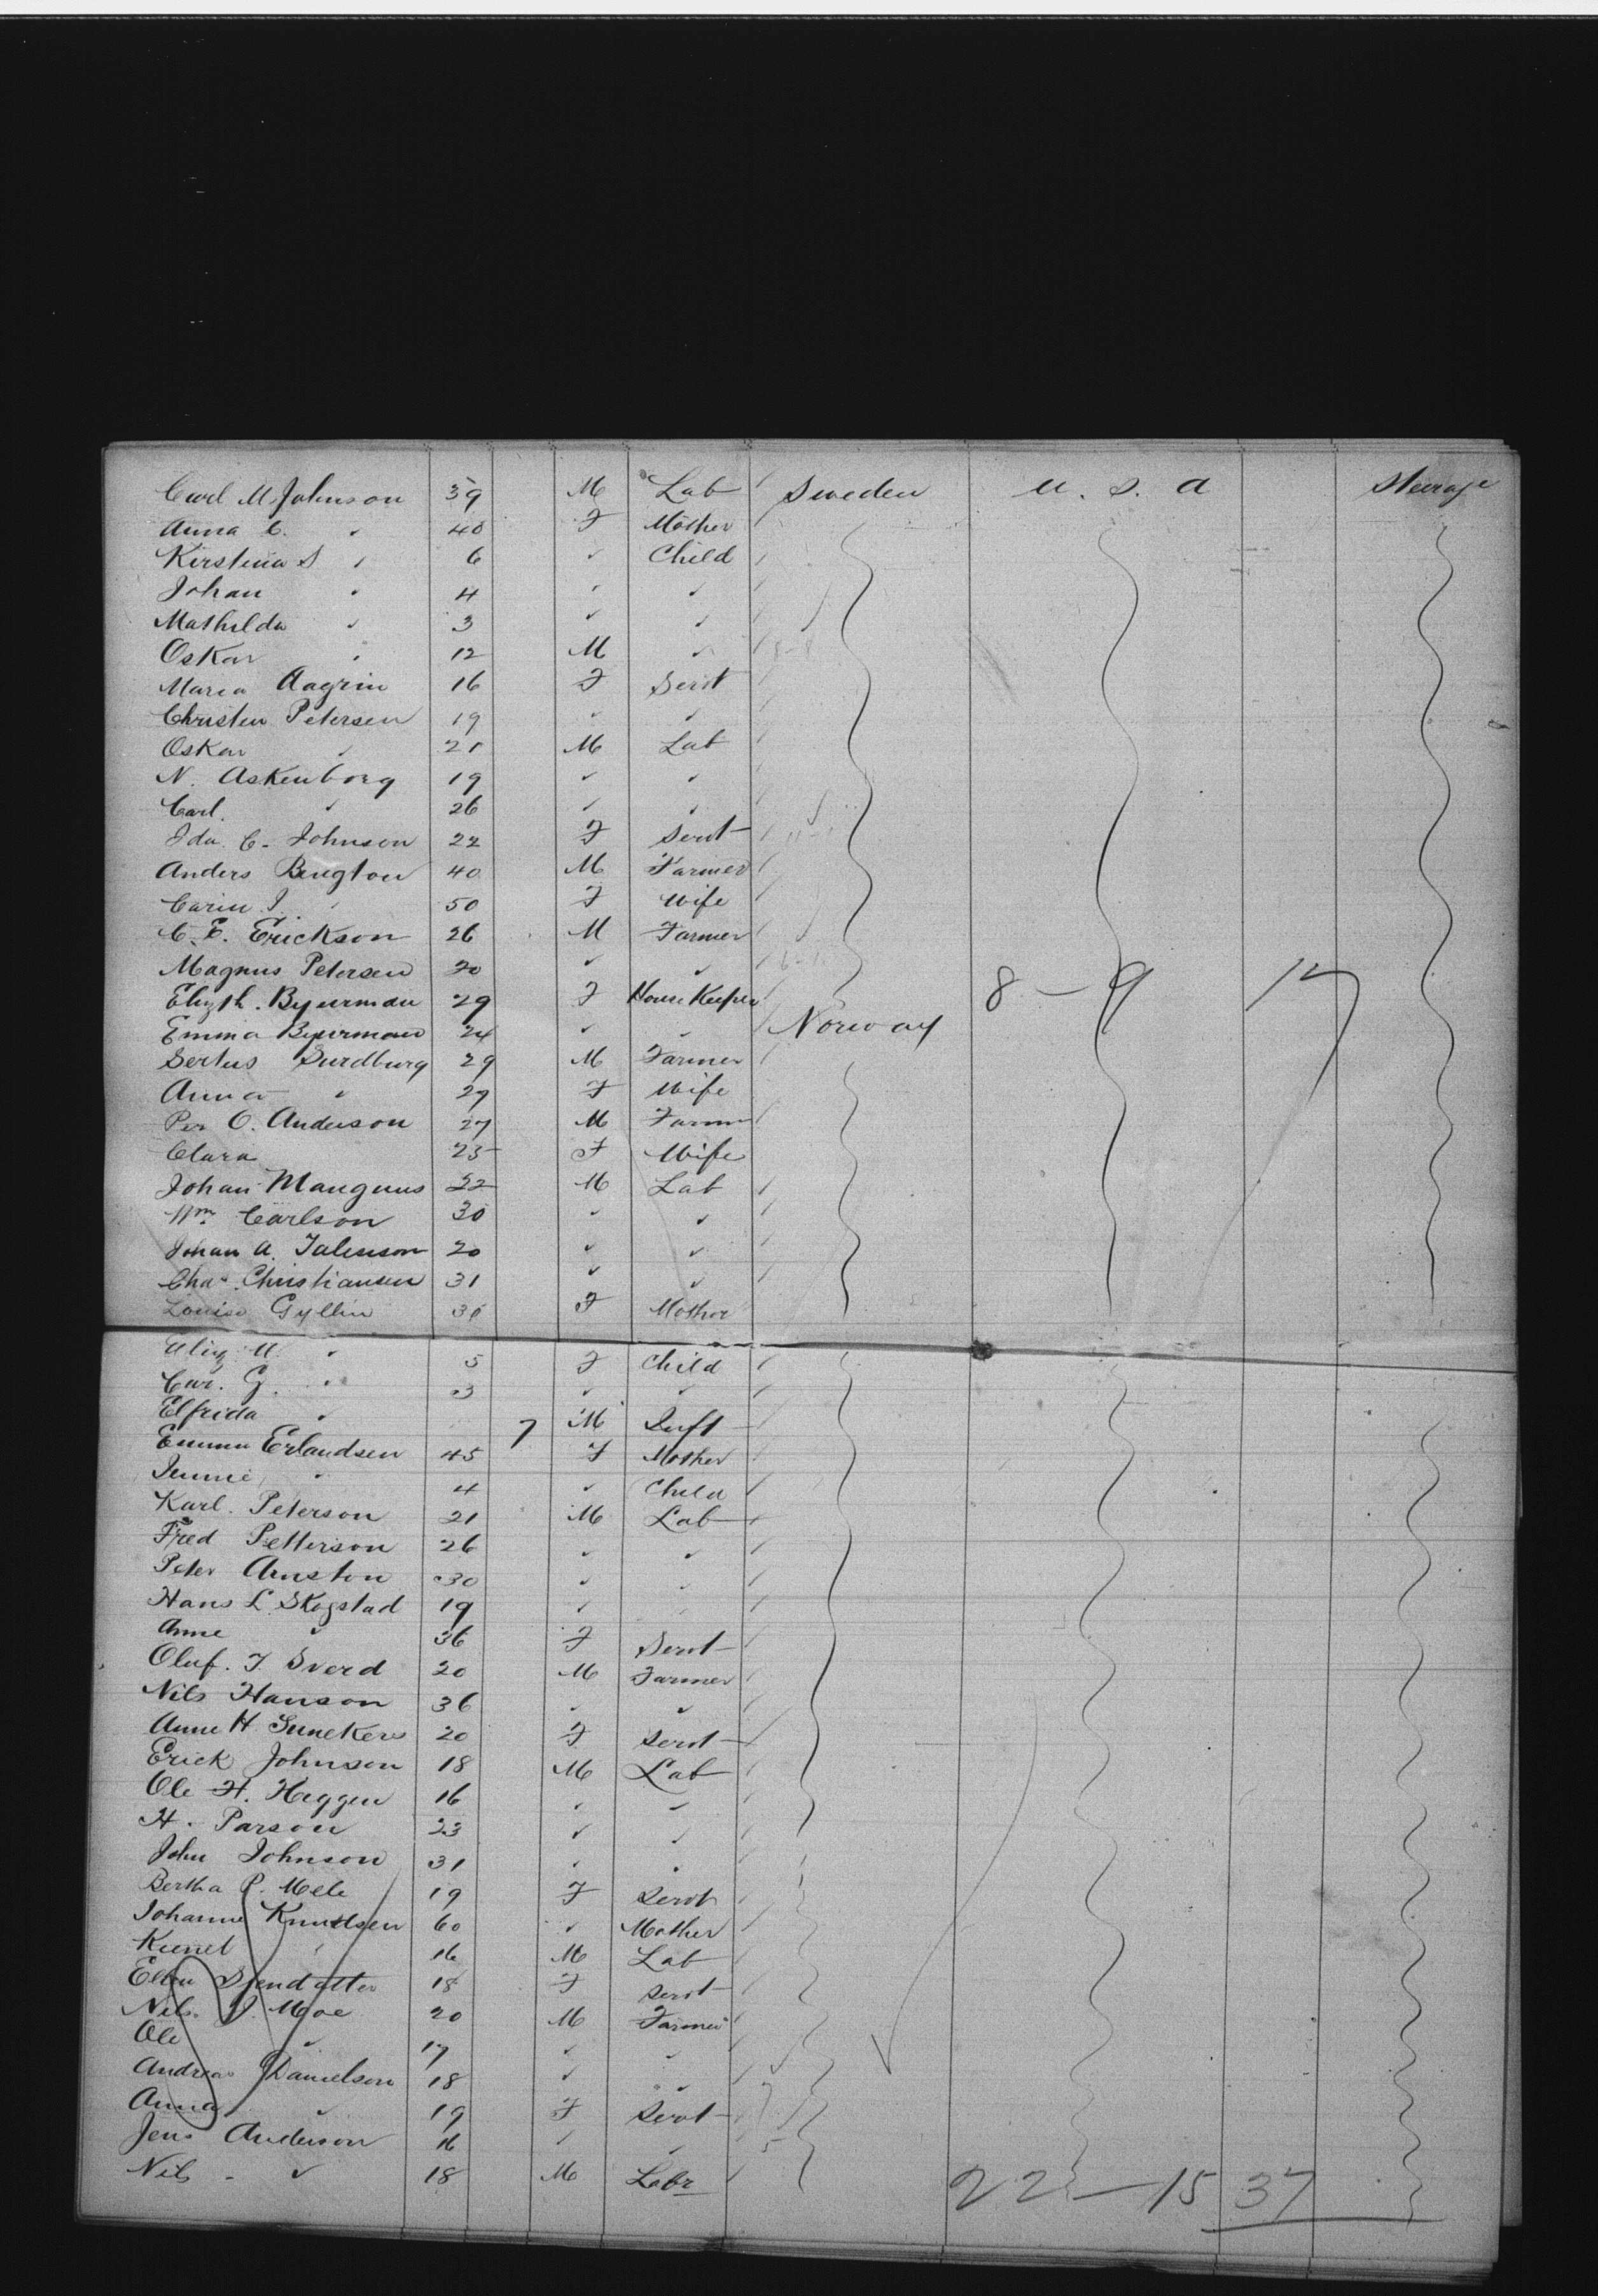 Carl M Johnson 39 M Lab Sweden U. S. A Steerage
Anna C. " 40 F Mother
Kirstina S " 6 " Child
Johan " 4 " "
Mathilda " 3 " "
Oskar " 12 M "
Maria Aagrin 16 F Servt
Christen Petersen 19 " "
Oskar " 21 M Lab
N. Askenborg 19 " "
Carl. " 26 " "
Ida C. Johnson 22 F Servt
Anders Bengton 40 M Farmer
Carin J. " 50 F Wife
C. E. Erickson 26 M Farmer
Magnus Petersen 20 " "
Elizth. Byurman 29 F House Keeper 8 - 9 17
Emma Byurman 24 " " Norway
Sertus Surdburg 29 M Farmer
Anna " 29 F Wife
Per O. Anderson 27 M Farmer
Clara 25 F Wife
Johan Mangnus 22 M Lab
Wm. Carlson 30 " "
Johan A. 20 " "
Chas. Christiansen 31 " "
Louise Gyllin 36 F Mother
Eliz. U. " 5 F Child
Car. G. " 3 " "
Elfrida " 7 M Inft
Emma Erlandsen 45 F Mother
Jennie " 4 " Child
Karl. Peterson 21 M Lab
Fred Petterson 26 " "
Peter Anston 30 " "
Hans L. Skogstad 19 " "
Anne " 36 F Servt
Oluf. T Sverd 20 M Farmer
Nils Hanson 36 " "
Anne H. 20 F Servt
Erick Johnson 18 M Lab
Ole H. Heggen 16 " "
H. Parson 23 " "
John Johnson 31 " "
Bertha P. Mele 19 F Servt
Johanne Knudsen 60 " Mother
Kunel " 16 M Lab
Ellen 18 F Servt
Nils. Moe 20 M Farmer
Ole " 17 " "
Andreas Danielson 18 " "
Anna " 19 F Servt
Jens Anderson 16 " "
Nils - " 18 M Labr 22 - 15 37